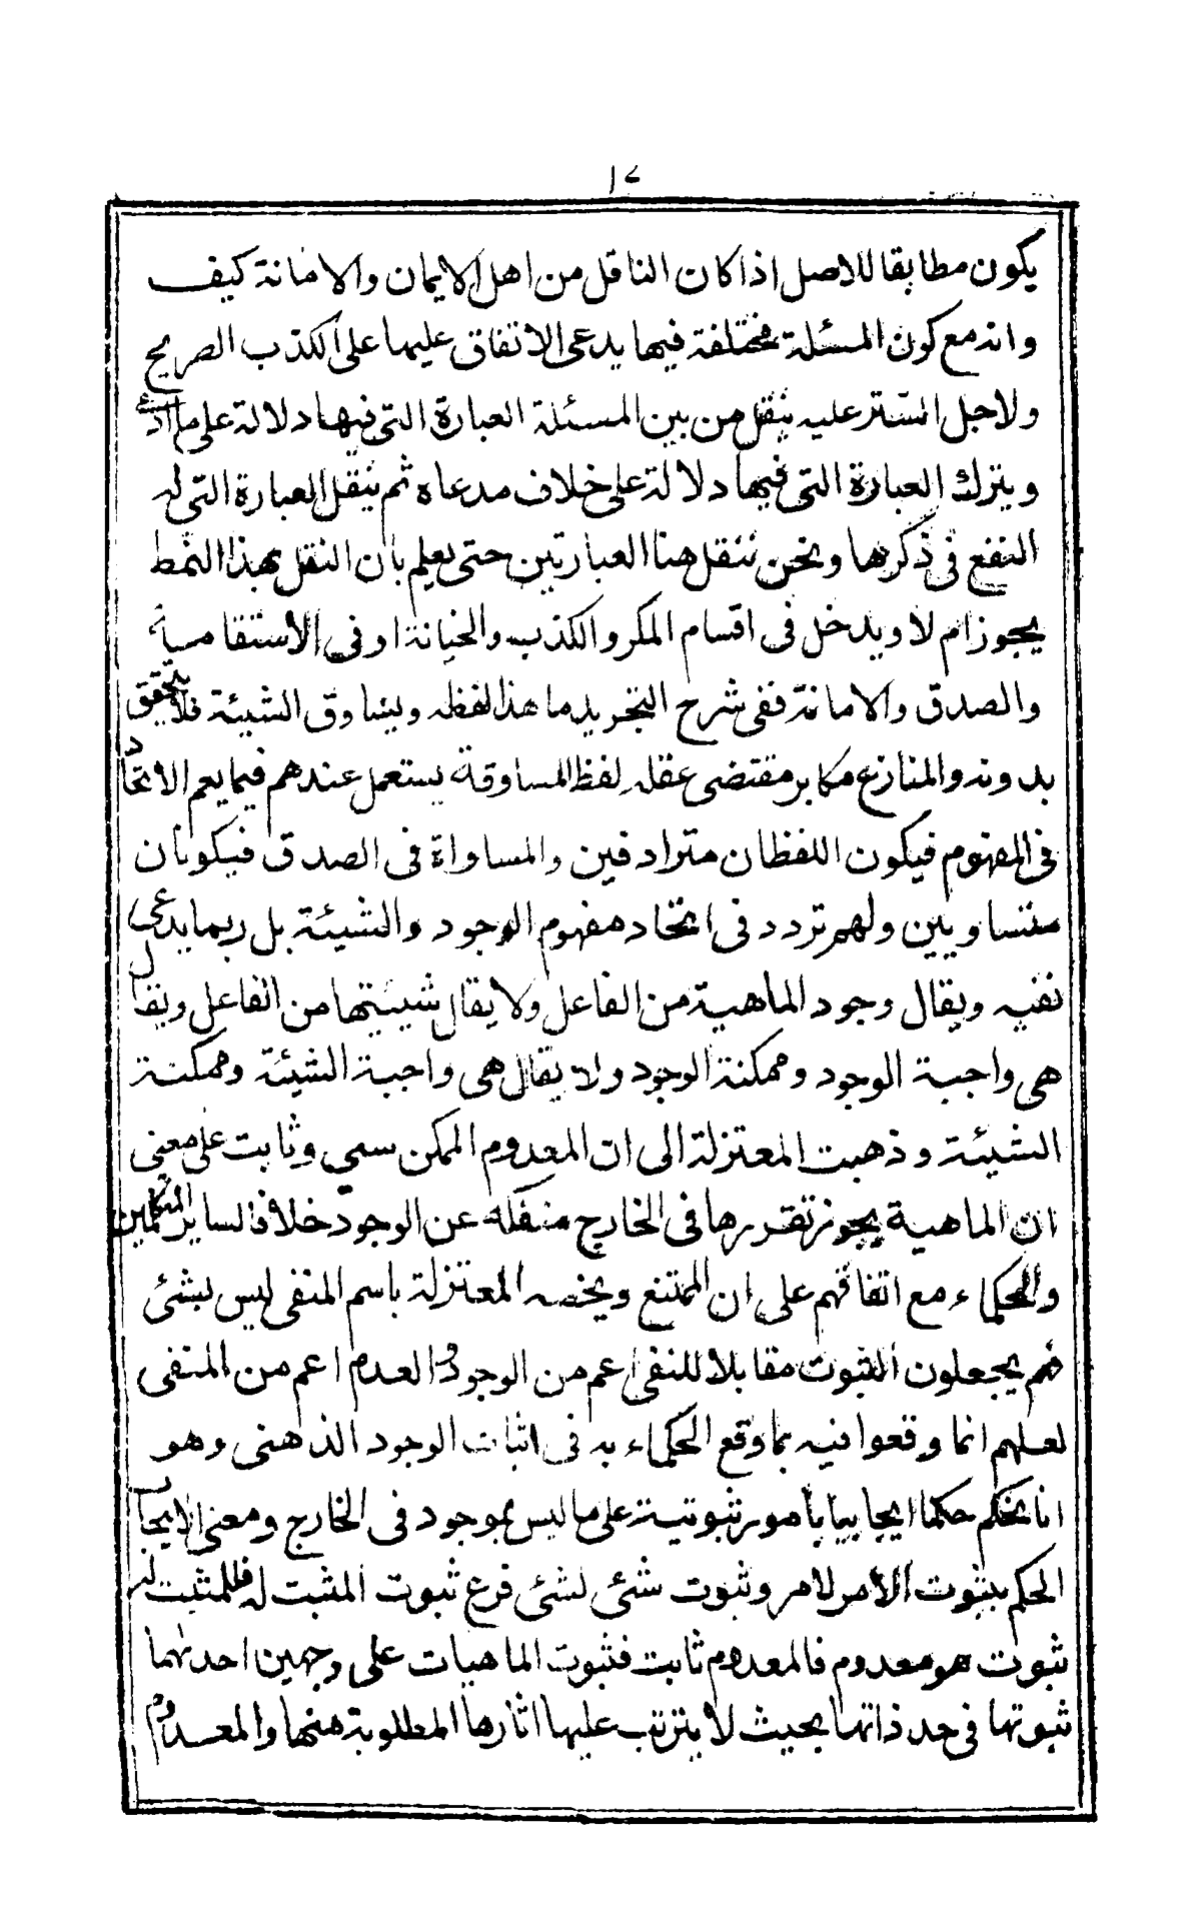 ١٢
يكون مطابقا للاصل اذا كان الناقل من اهل الايمان والامانة كيف
وانه مع كون المسئلة مختلفة فيها يدعى الاتفاق عليها على الكذب الصريح
ولاجل التستر عليه ينقل من بين المسئلة العبارة التى فيها دلالة على ما
ويترك العبارة التى فيها دلالة على خلاف مدعاه ثم ينقل العبارة التى له
النفع فى ذكرها ونحن ننقل هنا العبارتين حتى يعلم بان النقل بهذا النمط
يجوز ام لا ويدخل فى اقسام المكر والكذب والخيانة او فى الاستقامة
والصدق والامانة ففى شرح التجريد ما هذا لفظه ويساوق الشيئة فلا يتحقق
بدونه والمنازع مكابر مقتضى عقله لفظ المساوقة يستعمل عندهم فيما يعم الاتحاد
فى المفهوم فيكون اللفظان مترادفين والمساواة فى الصدق فيكونان
متساويين ولهم تردد فى اتحاد مفهوم الوجود والشيئة بل ربما يدعى
نفيه ويقال وجود الماهية من الفاعل ولا يقال شيئيتها من الفاعل ويقال
هى واجبة الوجود وممكنة الوجود ولا يقال هى واجبة الشيئة وممكنة
الشيئة وذهبت المعتزلة الى ان المعدوم الممكن سمي وثابت على معنى
ان الماهية يجوز تقررها فى الخارج منفكة عن الوجود خلافا لساير المتكلمين
والحكماء مع اتفاقهم على ان الممتنع ويخصه المعتزلة باسم المنفى ليس بشئ
فهم يجعلون الثبوت مقابلا للنفى اعم من الوجود والعدم اعم من المنفى
لعلهم انما وقعوا فيه بما وقع الحكماء به فى اثبات الوجود الذهنى وهو
انا نحكم حكما ايجابيا بأمور ثبوتية على ما ليس بموجود فى الخارج ومعنى الايجاب
الحكم بثبوت الأمر لامر وثبوت شئى لشئى فرع ثبوت المثبت له فللمثبت له
ثبوت هو معدوم فالمعدوم ثابت فثبوت الماهيات على وجهين احدهما
ثبوتها فى حد ذاتها بحيث لا يترتب عليها اثارها المطلوبة منها والمعدوم